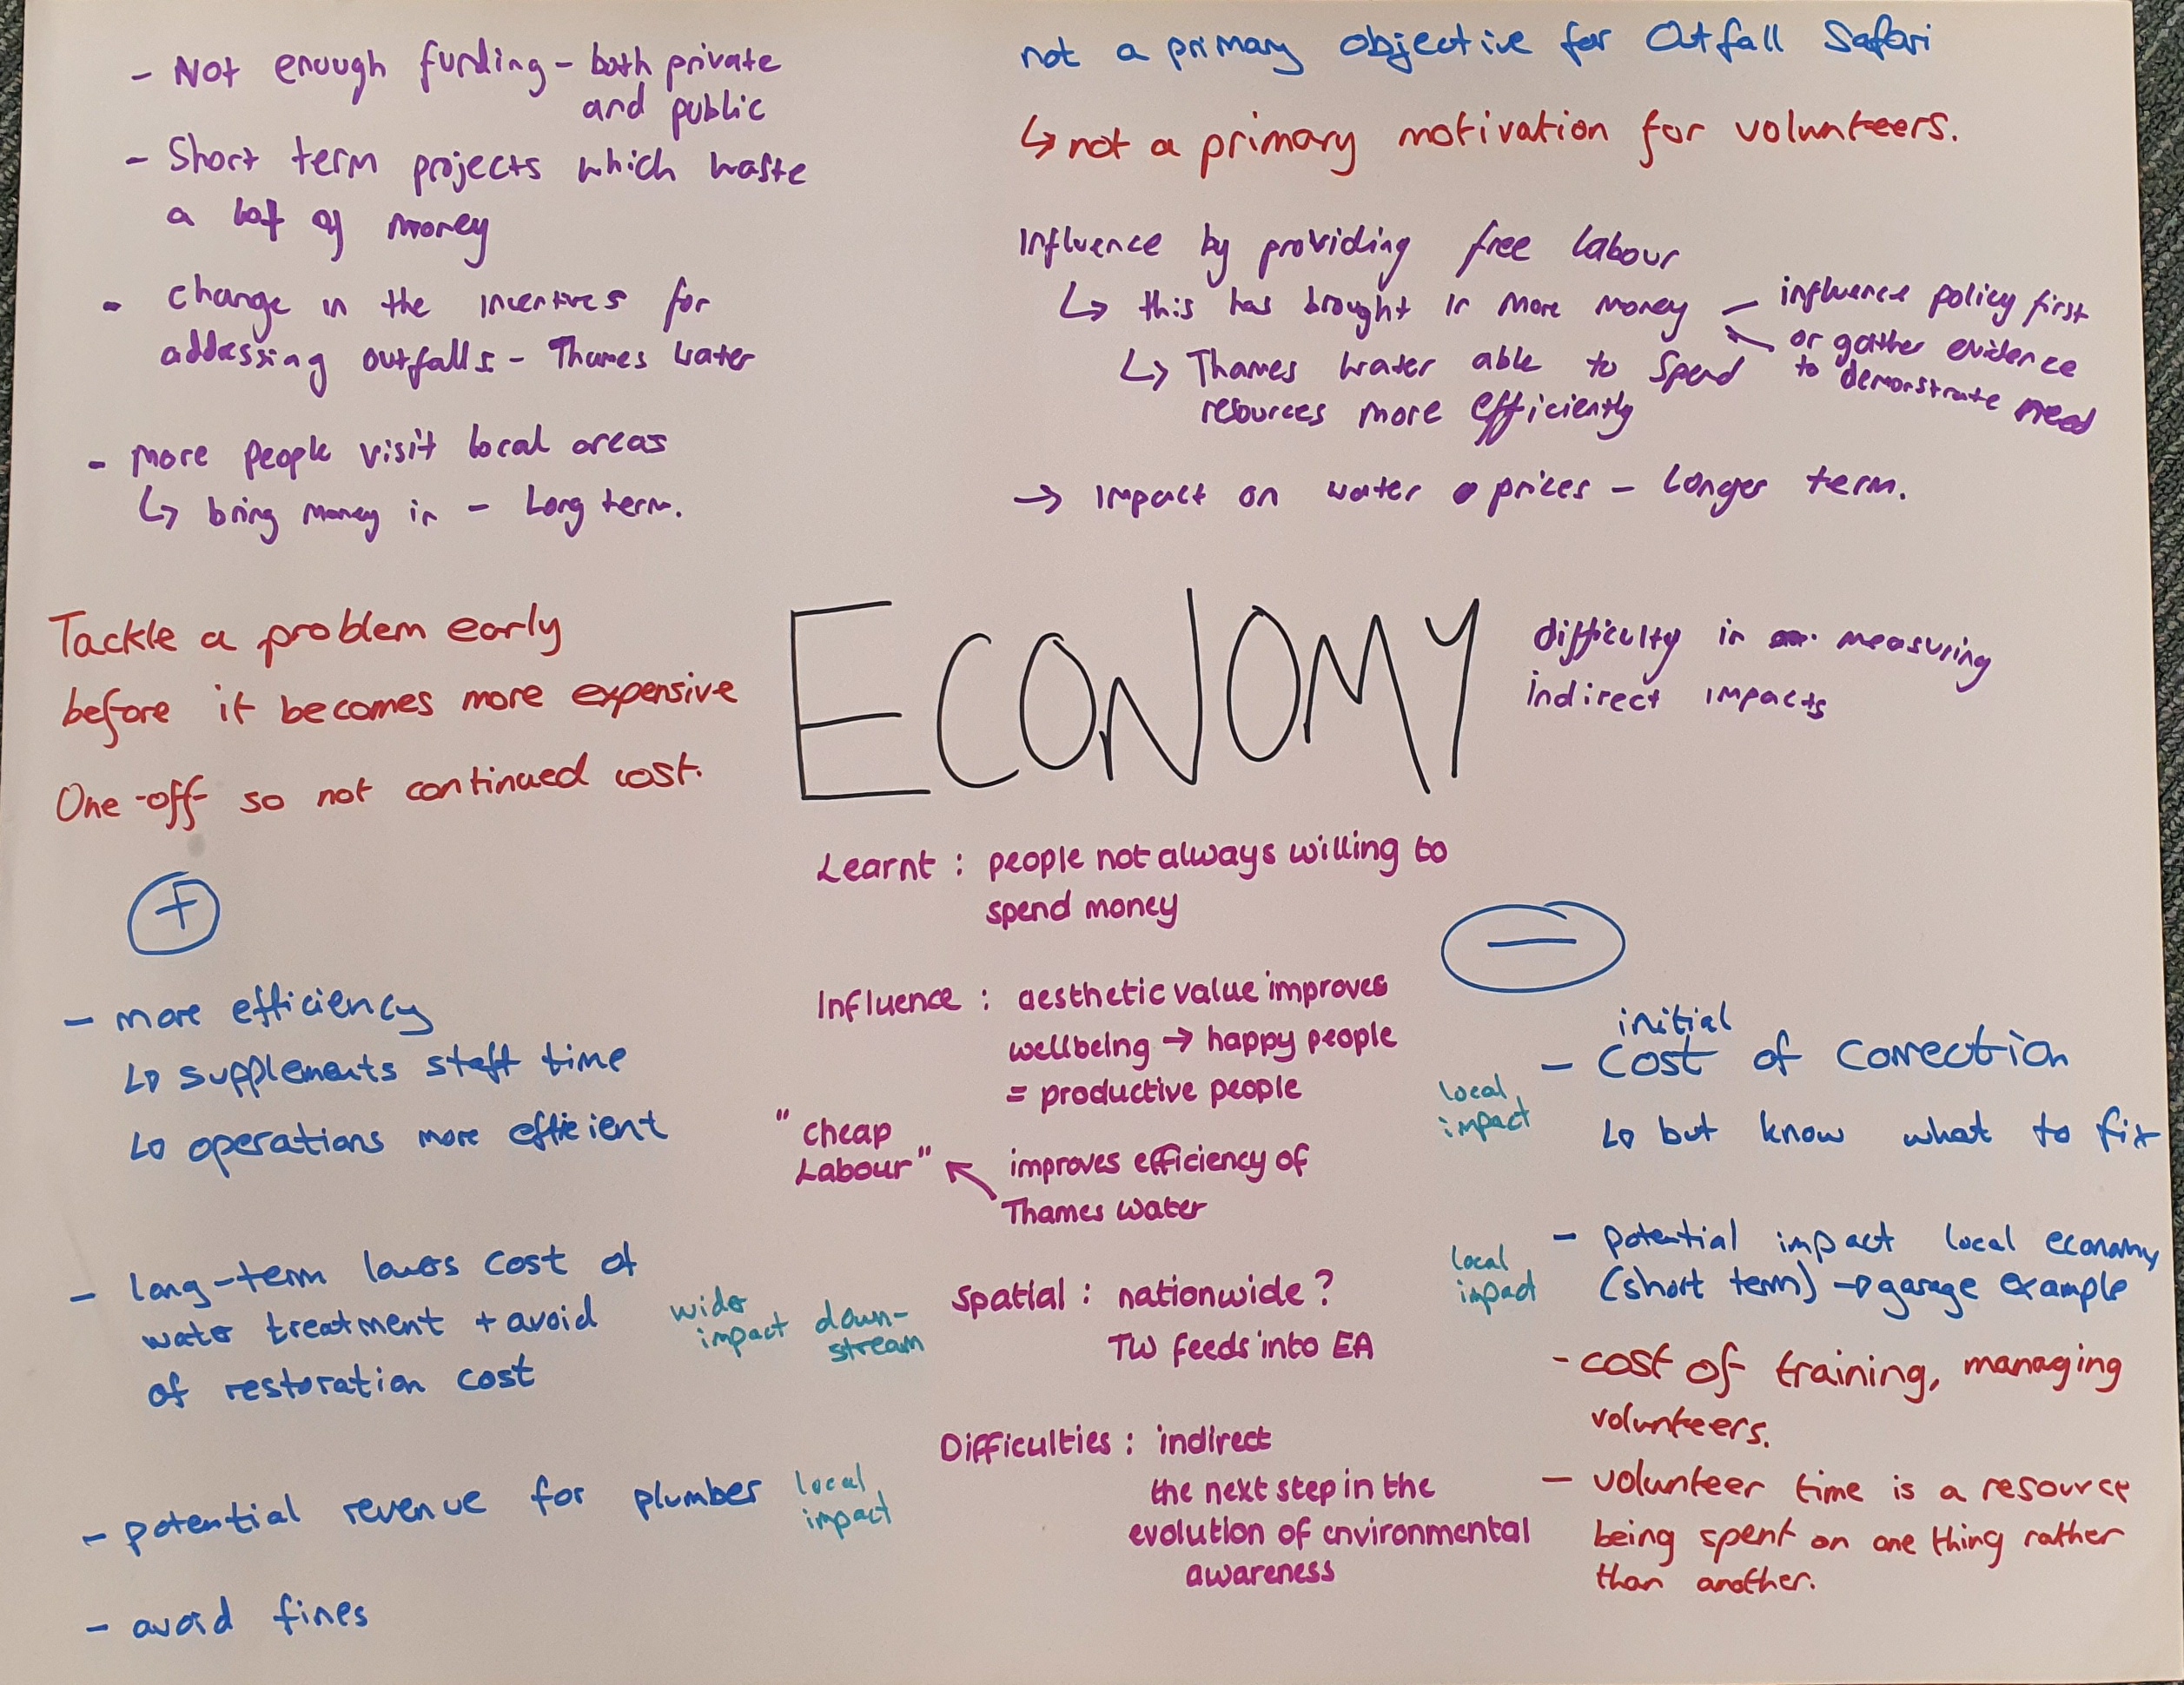 - Not enough funding - both private
and public
- Short term projects which waste
a lot of money
- change in the incentives for
addressing outfalls - Thames Water
- More people visit local areas
↳ bring money in - Long term.
not a primary objective for Outfall Safari
↳ not a primary motivation for volunteers.
Influence by providing free labour
↳ this has brought in more money
↳ Thames Water able to spend
resources more efficiently
influence policy first
or gather evidence
to demonstrate need
→ Impact on water prices - Longer term.
Tackle a problem early
before it becomes more expensive
One-off so not continued cost.
ECONOMY
difficulty in measuring
indirect impacts
Learnt : people not always willing to
spend money
Influence : aesthetic value improves
wellbeing → happy people
= productive people
improves efficiency of
Thames Water
"Cheap
Labour"
Spatial : nationwide?
TW feeds into EA
Difficulties : indirect
the next step in the
evolution of environmental
awareness
+
- more efficiency
↳ supplements staff time
↳ operations more efficient
- long-term lowers cost of
water treatment + avoid
of restoration cost
wider
impact
down-
stream
- potential revenue for plumber
local
impact
- avoid fines
−
initial
- cost of correction
↳ but know what to fix
local
impact
- potential impact local economy
(short term) → garage example
local
impact
- cost of training, managing
volunteers.
- volunteer time is a resource
being spent on one thing rather
than another.